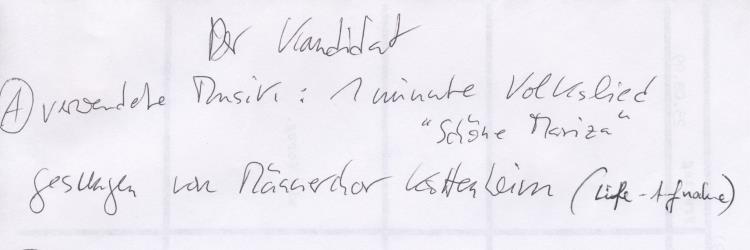 Der Kandidat
A verwendete Musik: 1 minute Volkslied
"Schöne Mariza"
gesungen von Männerchor Kettenheim (Life-Aufnahme)